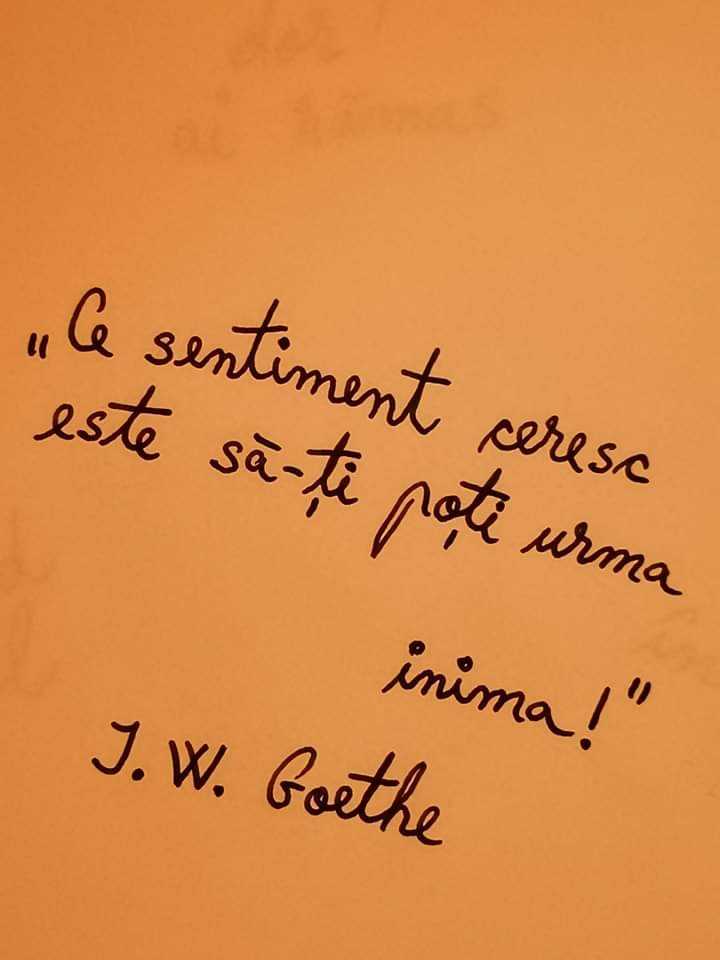 dor
ai rămas
„Ce sentiment ceresc
este să-ți poți urma
inima!"
J. W. Goethe